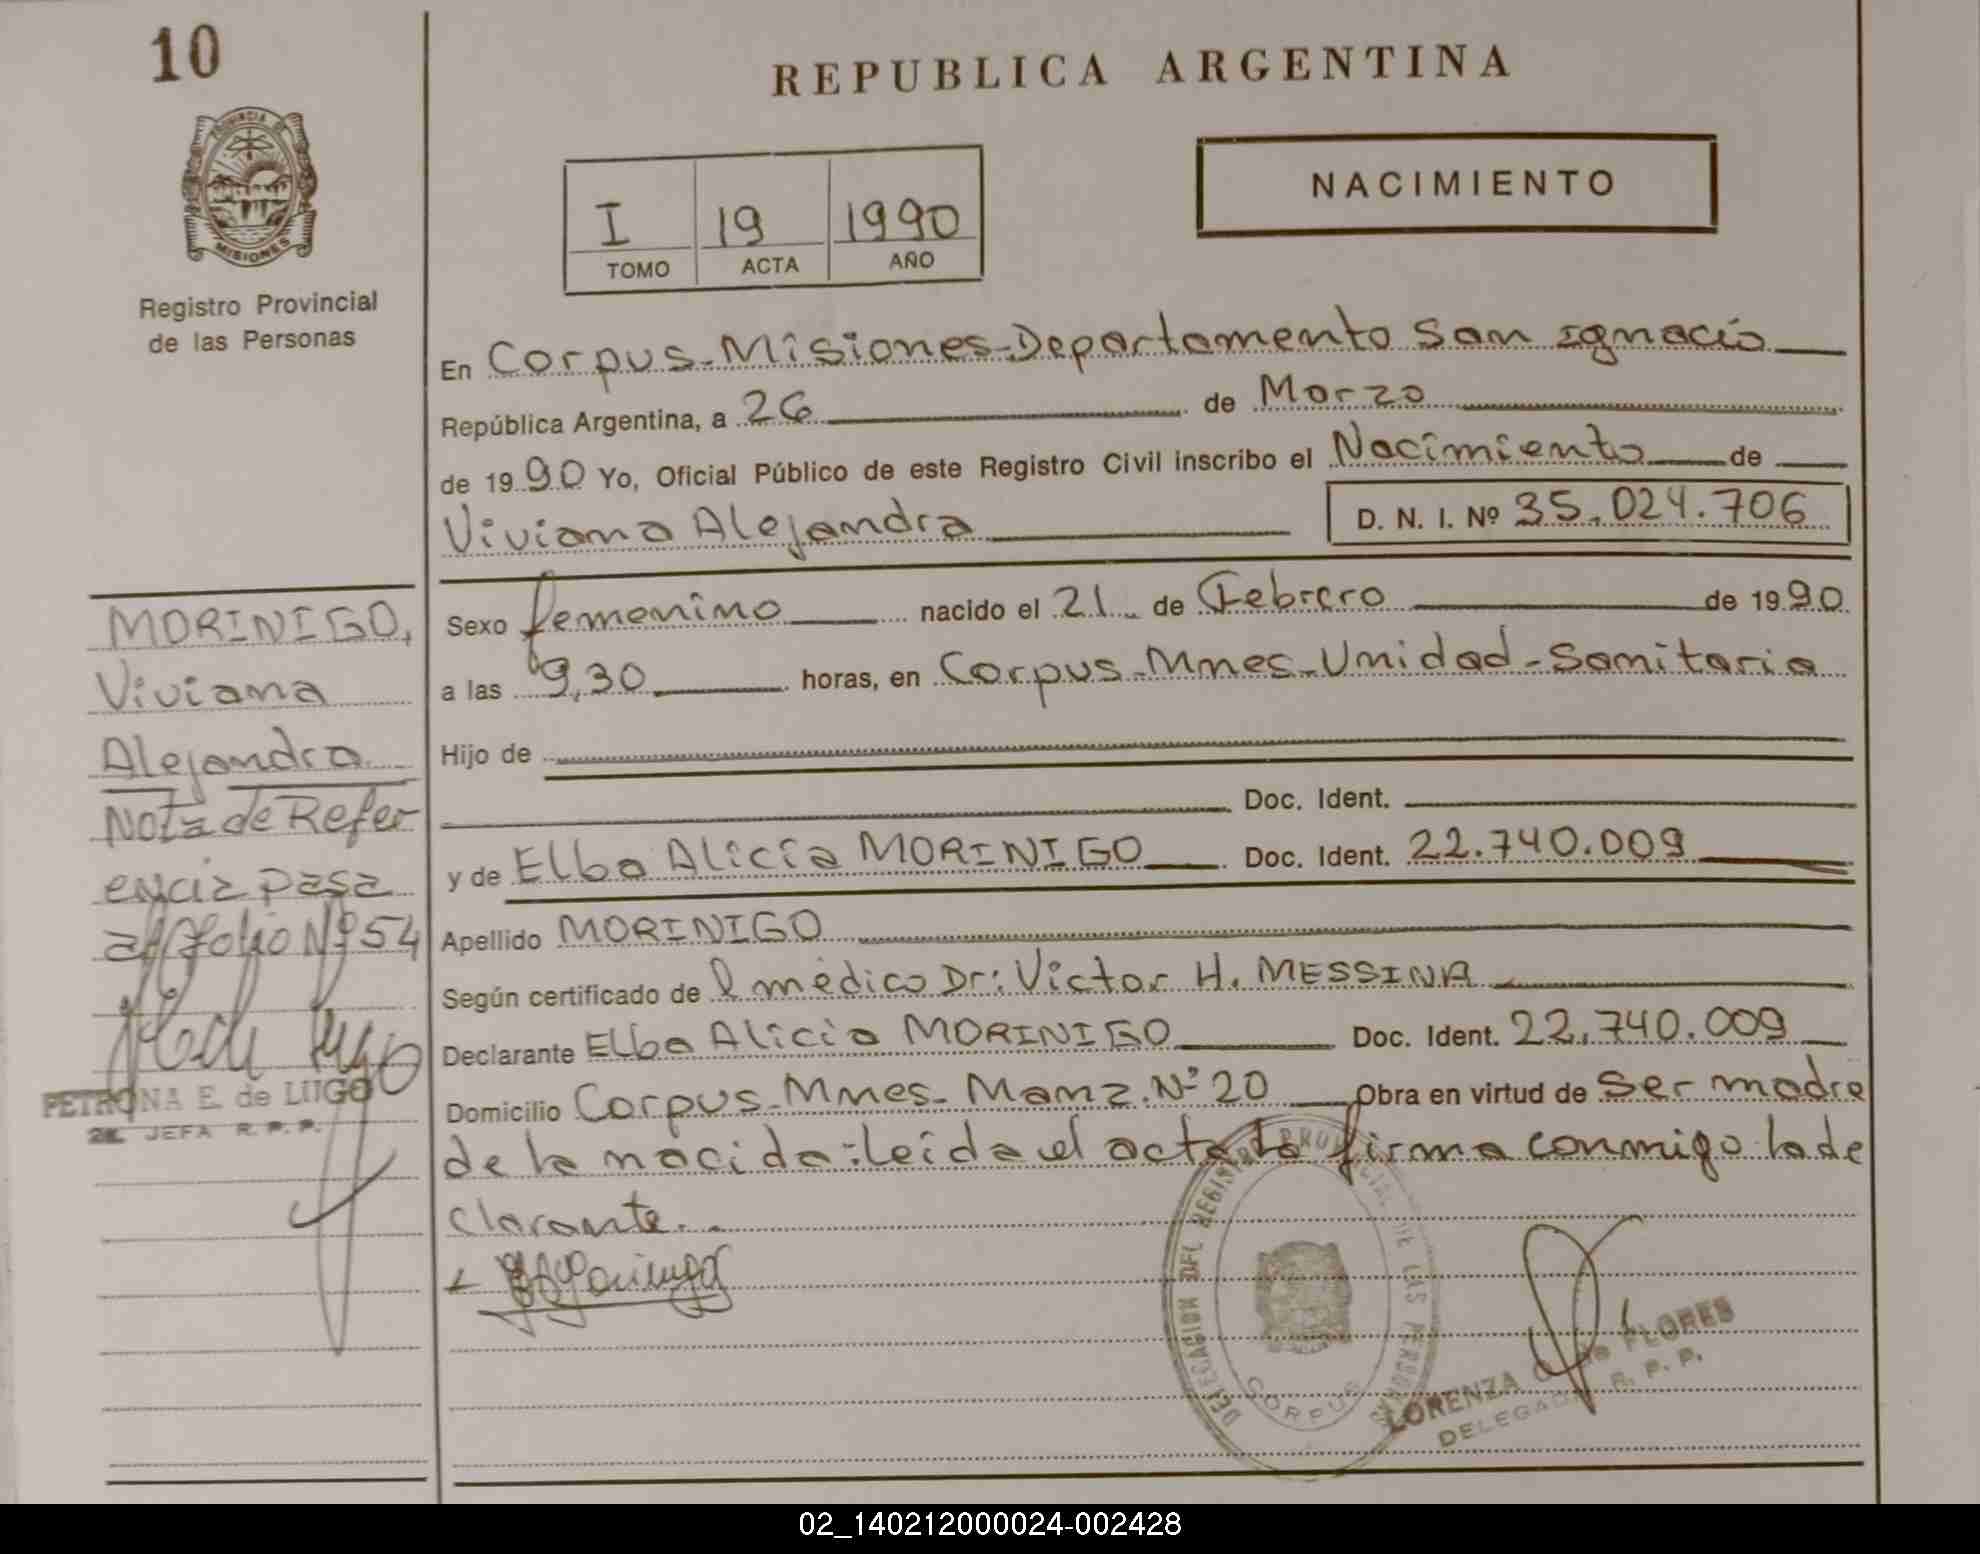 10
REPUBLICA ARGENTINA
PROVINCIA DE
MISIONES
Registro Provincial
de las Personas
NACIMIENTO
I 19 1990
TOMO ACTA AÑO
En Corpus-Misiones-Departamento San Ignacio
República Argentina, a 26 de Marzo
de 1990 Yo, Oficial Público de este Registro Civil inscribo el Nacimiento de
Viviana Alejandra D. N. I. Nº 35.024.706
Sexo femenino nacido el 21 de Febrero de 1990
a las 9,30 horas, en Corpus-Mnes-Unidad-Sanitaria
Hijo de
Doc. Ident.
y de Elba Alicia MORINIGO Doc. Ident. 22.740.009
Apellido MORINIGO
Según certificado de l médico Dr: Victor H. MESSINA
Declarante Elba Alicia MORINIGO Doc. Ident. 22.740.009
Domicilio Corpus-Mnes-Manz.Nº20 Obra en virtud de Ser madre
de la nacida:leida el acta la firma conmigo la de
clarante.
MORINIGO,
Viviana
Alejandra
Nota de Refer
encia pasa
al folio Nº54
PETRONA E. de LUGO
JEFA R. P. P.
DELEGACION DEL REGISTRO PROVINCIAL DE LAS PERSONAS
CORPUS
LORENZA de FLORES
DELEGADA R. P. P.
02_140212000024-002428